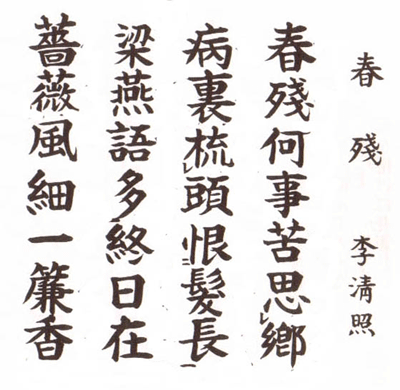 春殘 李清照
春殘何事苦思鄉
病裏梳頭恨髮長
梁燕語多終日在
薔薇風細一簾香